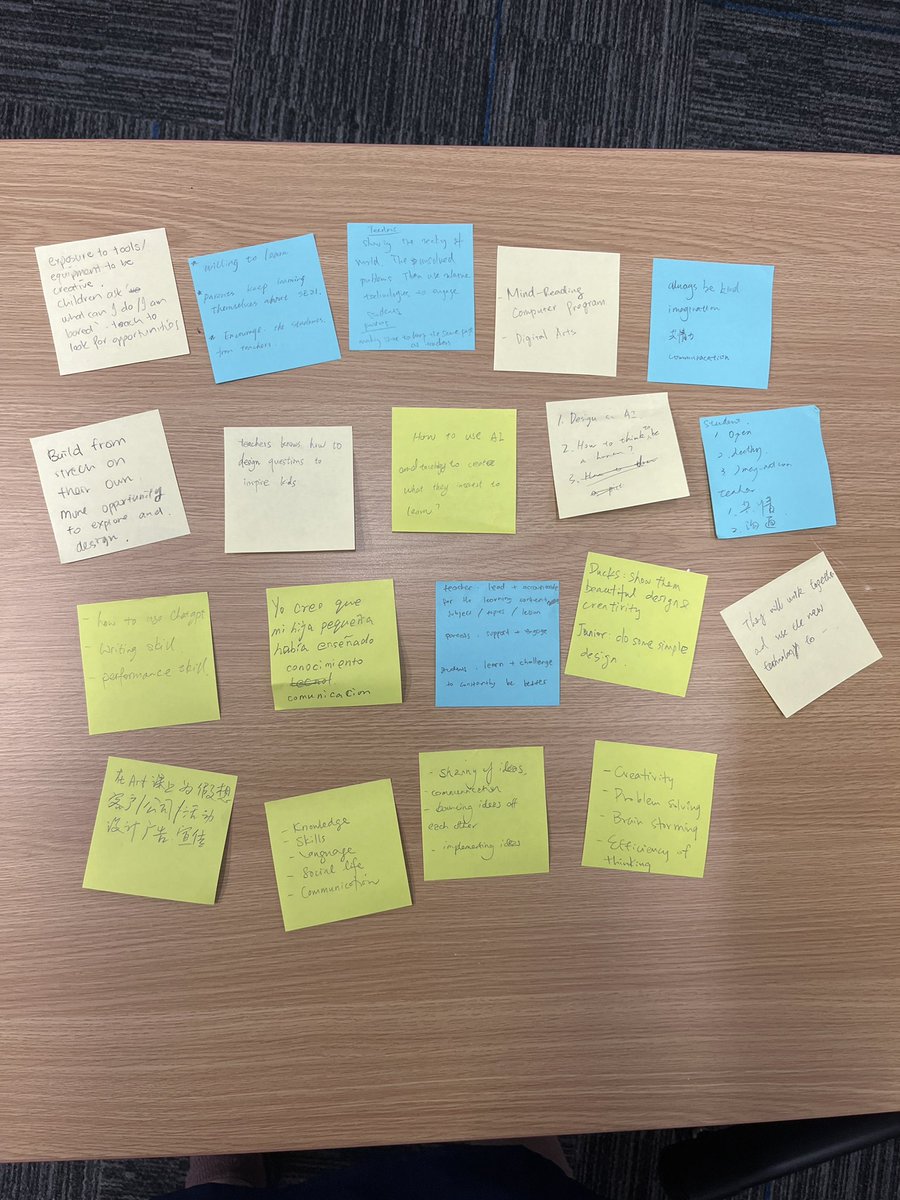 exposure to tools/
equipment to be
creative.
children ask
what can I do/I am
bored. teach to
look for opportunities
* willing to learn
* parents keep learning
themselves about
* Encourage the students
from teachers.
Teachers
sharing the reality of
world. The unsolved
problems. Then use
technologies to engage
students
making sure to keep the same
as teachers
- Mind-Reading
Computer Program
- Digital Arts
always be kind
imagination
communication
Build from
strech on
their own
more opportunity
to explore and
design.
teachers knows how to
design questions to
inspire kids
How to use AI
and to create
what they interest to
learn?
1. Design an AI.
2. How to think to be
a human?
3.
Student.
1. Open
2.
3. Imagination
teacher
1. 共情
2. 沟通
- how to use Chatgpt
- writing skill
- performance skill
Yo creo que
mi hija pequeña
había enseñado
conocimiento
comunicación
teacher: lead + accountable
for the learning content
subjects / topics / lesson
parents: support + engage
students: learn + challenge
to constantly be better
Ducks: show them
beautiful designs
creativity
Junior: do some simple
design.
They will work together
and use the new
technology to
在Art课上为假想
客户/公司/活动
设计广告宣传
- Knowledge
- Skills
- Language
- Social life
- Communication
- sharing of ideas,
- communication
- bouncing ideas off
each other
- implementing ideas
- Creativity
- Problem solving
- Brain storming
- Efficiency of
thinking